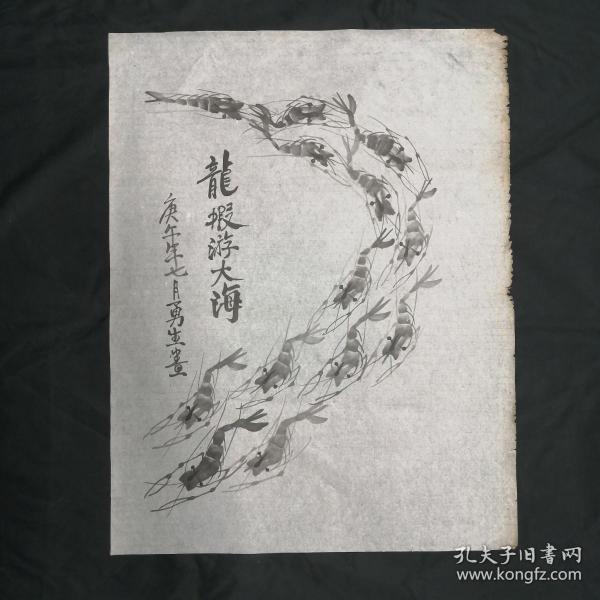 龍蝦游大海
庚午年七月勇生畫
孔夫子旧書网
www.kongfz.com